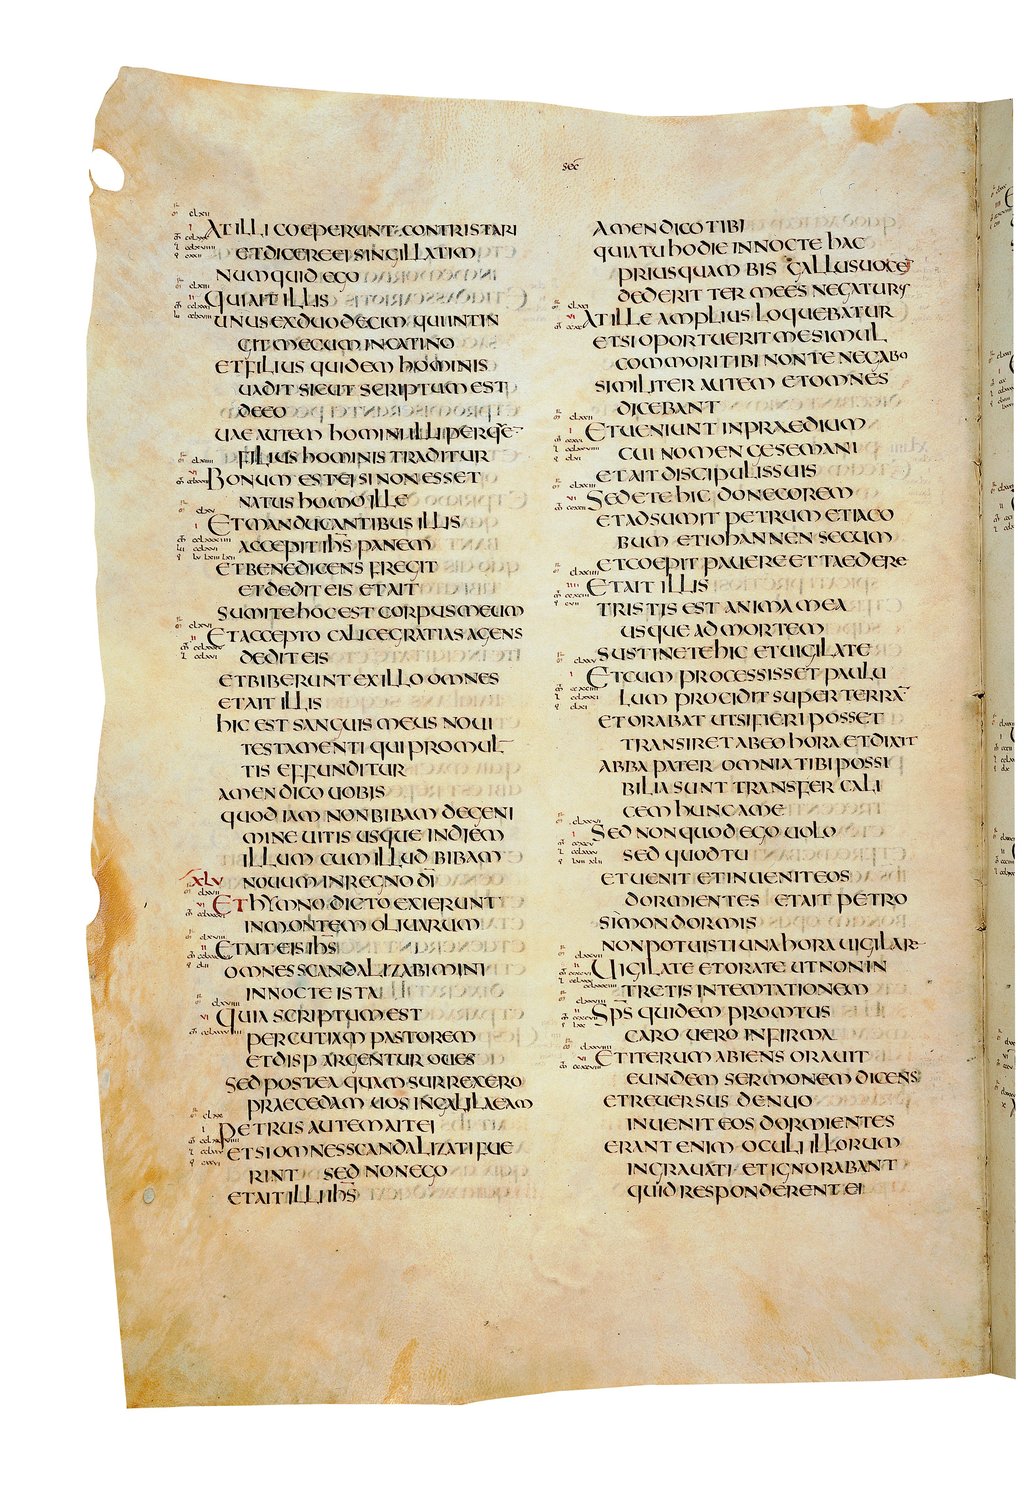 sec
AT ILLI COEPERUNT CONTRISTARI
ET DICERE EI SINGILLATIM
NUMQUID EGO
QUI AIT ILLIS
UNUS EX DUODECIM QUI INTIN
GIT MECUM IN CATINO
ET FILIUS QUIDEM HOMINIS
UADIT SICUT SCRIPTUM EST
DE EO
UAE AUTEM HOMINI ILLI PER QUE
FILIUS HOMINIS TRADITUR
BONUM EST EI SI NON ESSET
NATUS HOMO ILLE
ET MANDUCANTIBUS ILLIS
ACCEPIT IHS PANEM
ET BENEDICENS FREGIT
ET DEDIT EIS ET AIT
SUMITE HOC EST CORPUS MEUM
ET ACCEPTO CALICE GRATIAS AGENS
DEDIT EIS
ET BIBERUNT EX ILLO OMNES
ET AIT ILLIS
HIC EST SANGUIS MEUS NOUI
TESTAMENTI QUI PRO MUL
TIS EFFUNDITUR
AMEN DICO UOBIS
QUOD IAM NON BIBAM DE GENI
MINE UITIS USQUE IN DIEM
ILLUM CUM ILLUD BIBAM
XLV NOUUM IN REGNO DI
ET HYMNO DICTO EXIERUNT
IN MONTEM OLIUARUM
ET AIT EIS IHS
OMNES SCANDALIZABIMINI
IN NOCTE ISTA
QUIA SCRIPTUM EST
PERCUTIAM PASTOREM
ET DISPARGENTUR OUES
SED POSTEA QUAM SURREXERO
PRAECEDAM UOS IN GALILAEAM
PETRUS AUTEM AIT EI
ET SI OMNES SCANDALIZATI FUE
RINT SED NON EGO
ET AIT ILLI IHS
AMEN DICO TIBI
QUIA TU HODIE IN NOCTE HAC
PRIUSQUAM BIS GALLUS UOCE
DEDERIT TER ME ES NEGATURUS
AT ILLE AMPLIUS LOQUEBATUR
ET SI OPORTUERIT ME SIMUL
COMMORI TIBI NON TE NEGABO
SIMILITER AUTEM ET OMNES
DICEBANT
ET UENIUNT IN PRAEDIUM
CUI NOMEN GESEMANI
ET AIT DISCIPULIS SUIS
SEDETE HIC DONEC OREM
ET ADSUMIT PETRUM ET IACO
BUM ET IOHANNEN SECUM
ET COEPIT PAUERE ET TAEDERE
ET AIT ILLIS
TRISTIS EST ANIMA MEA
USQUE AD MORTEM
SUSTINETE HIC ET UIGILATE
ET CUM PROCESSISSET PAULU
LUM PROCIDIT SUPER TERRA
ET ORABAT UT SI FIERI POSSET
TRANSIRET AB EO HORA ET DIXIT
ABBA PATER OMNIA TIBI POSSI
BILIA SUNT TRANSFER CALI
CEM HUNC A ME
SED NON QUOD EGO UOLO
SED QUOD TU
ET UENIT ET INUENIT EOS
DORMIENTES ET AIT PETRO
SIMON DORMIS
NON POTUISTI UNA HORA UIGILARE
UIGILATE ET ORATE UT NON IN
TRETIS IN TEMTATIONEM
SPS QUIDEM PROMTUS
CARO UERO INFIRMA
ET ITERUM ABIENS ORAUIT
EUNDEM SERMONEM DICENS
ET REUERSUS DENUO
INUENIT EOS DORMIENTES
ERANT ENIM OCULI ILLORUM
INGRAUATI ET IGNORABANT
QUID RESPONDERENT EI